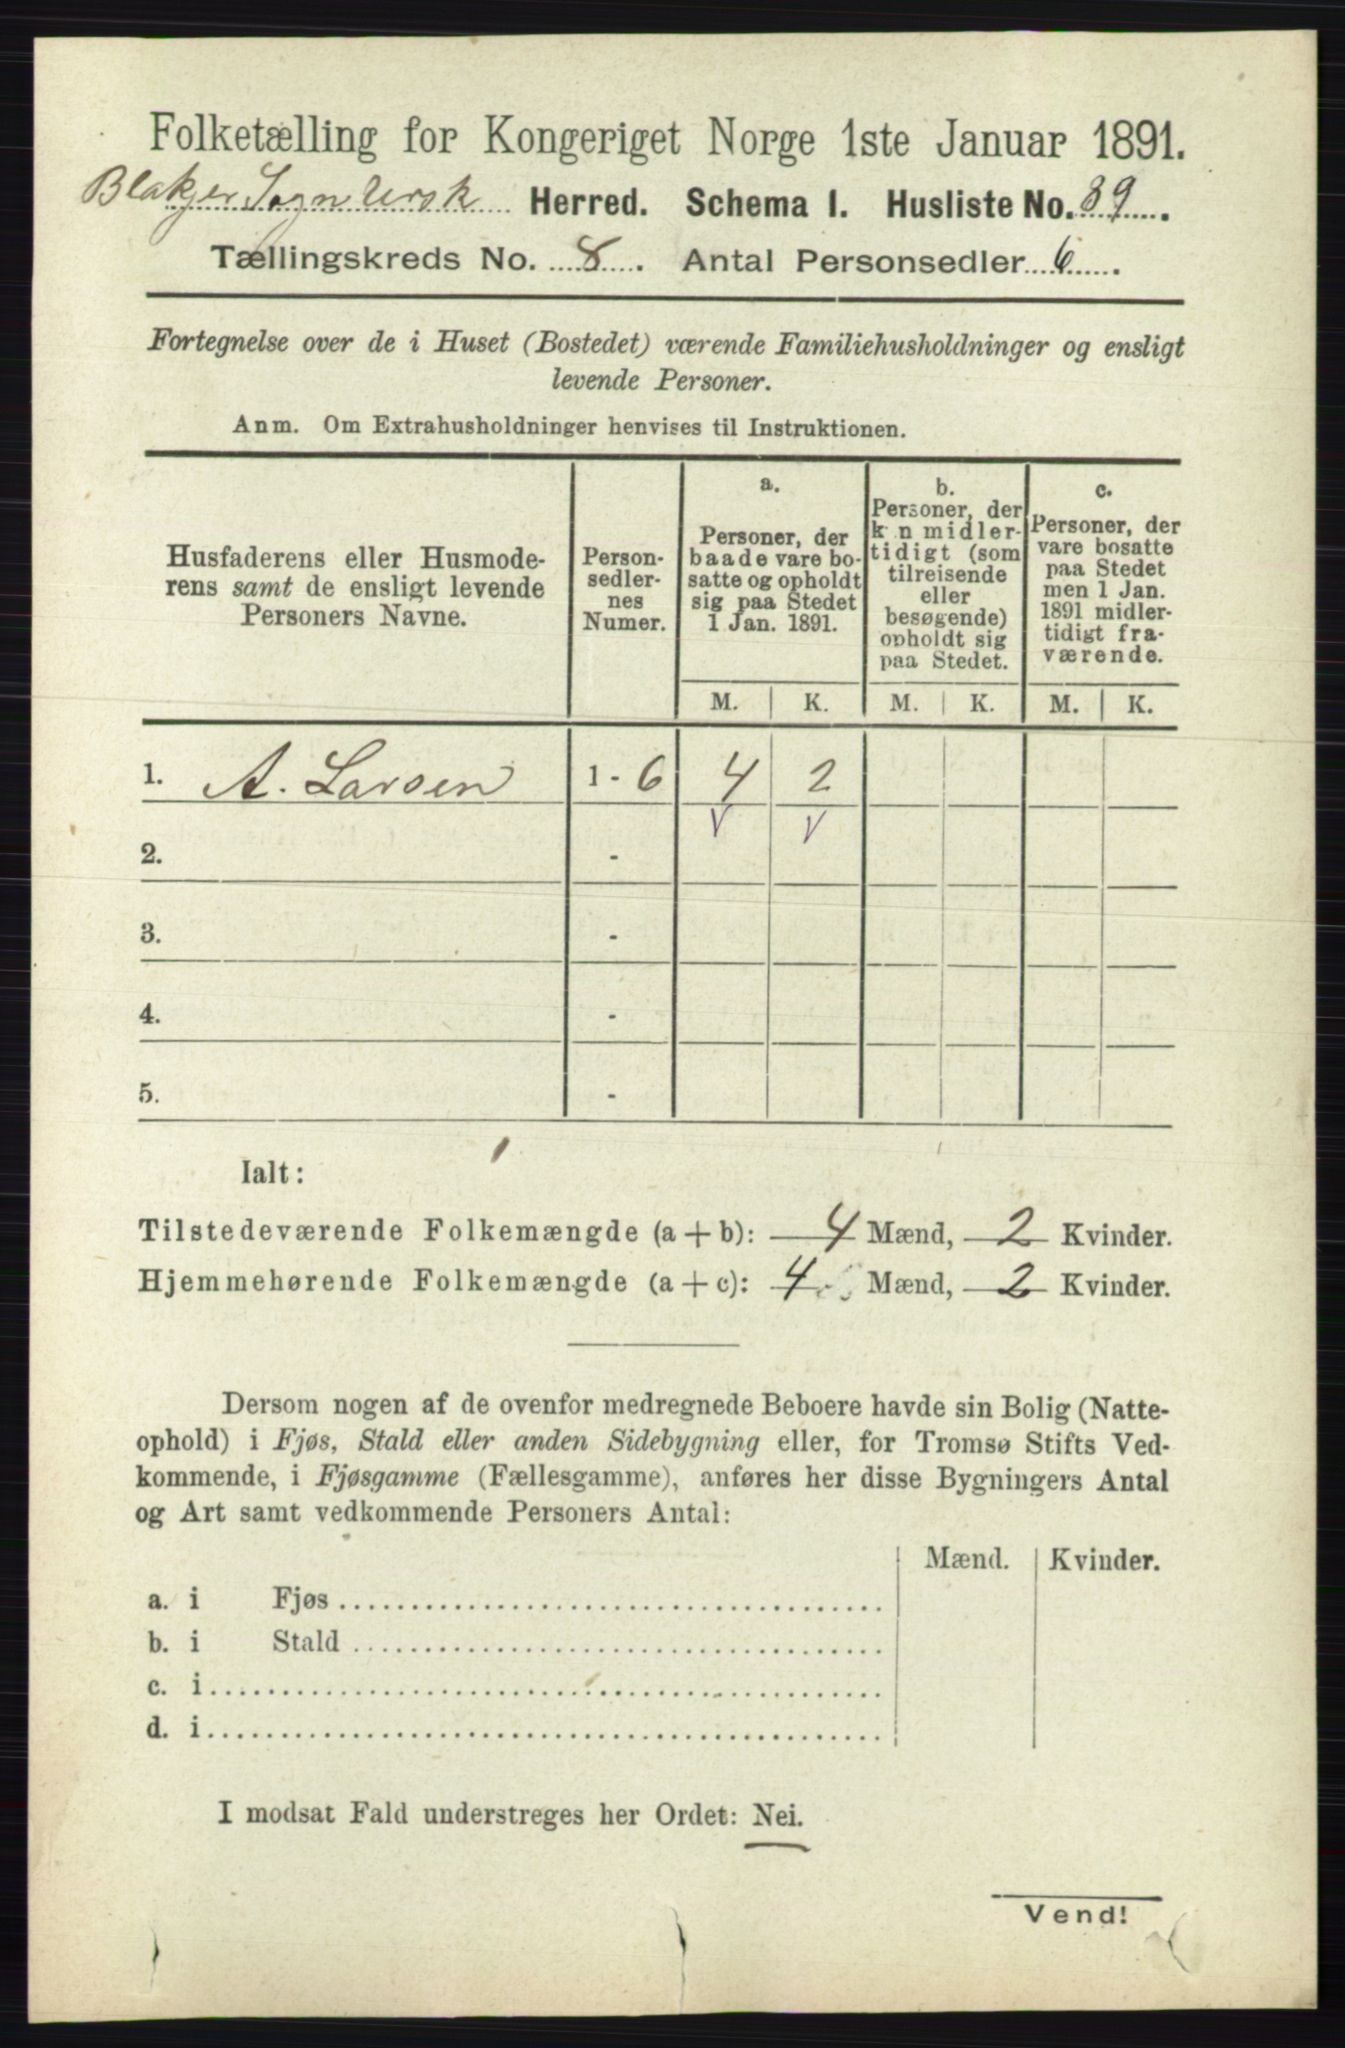 Folketælling for Kongeriget Norge 1ste Januar 1891.
Blakjer Sogn Ursk Herred. Schema I. Husliste No. 89.
Tællingskreds No. 8. Antal Personsedler 6.
Fortegnelse over de i Huset (Bostedet) værende Familiehusholdninger og ensligt
levende Personer.
Anm. Om Extrahusholdninger henvises til Instruktionen.
Husfaderens eller Husmode-
rens samt de ensligt levende
Personers Navne.
Person-
sedler-
nes
Numer.
a.
Personer, der
baade vare bo-
satte og opholdt
sig paa Stedet
1 Jan. 1891.
b.
Personer, der
k n midler-
tidigt (som
tilreisende
eller
besøgende)
opholdt sig
paa Stedet.
c.
Personer, der
vare bosatte
paa Stedet
men 1 Jan.
1891 midler-
tidigt fra-
værende.
M. K. M. K. M. K.
1. A. Larsen 1 - 6 4 2
V V
2. -
3. -
4. -
5. -
Ialt:
Tilstedeværende Folkemængde (a + b): 4 Mænd, 2 Kvinder.
Hjemmehørende Folkemængde (a + c): 4 Mænd, 2 Kvinder.
Dersom nogen af de ovenfor medregnede Beboere havde sin Bolig (Natte-
ophold) i Fjøs, Stald eller anden Sidebygning eller, for Tromsø Stifts Ved-
kommende, i Fjøsgamme (Fællesgamme), anføres her disse Bygningers Antal
og Art samt vedkommende Personers Antal:
Mænd. Kvinder.
a. i Fjøs
b. i Stald
c. i
d. i
I modsat Fald understreges her Ordet: Nei.
Vend!